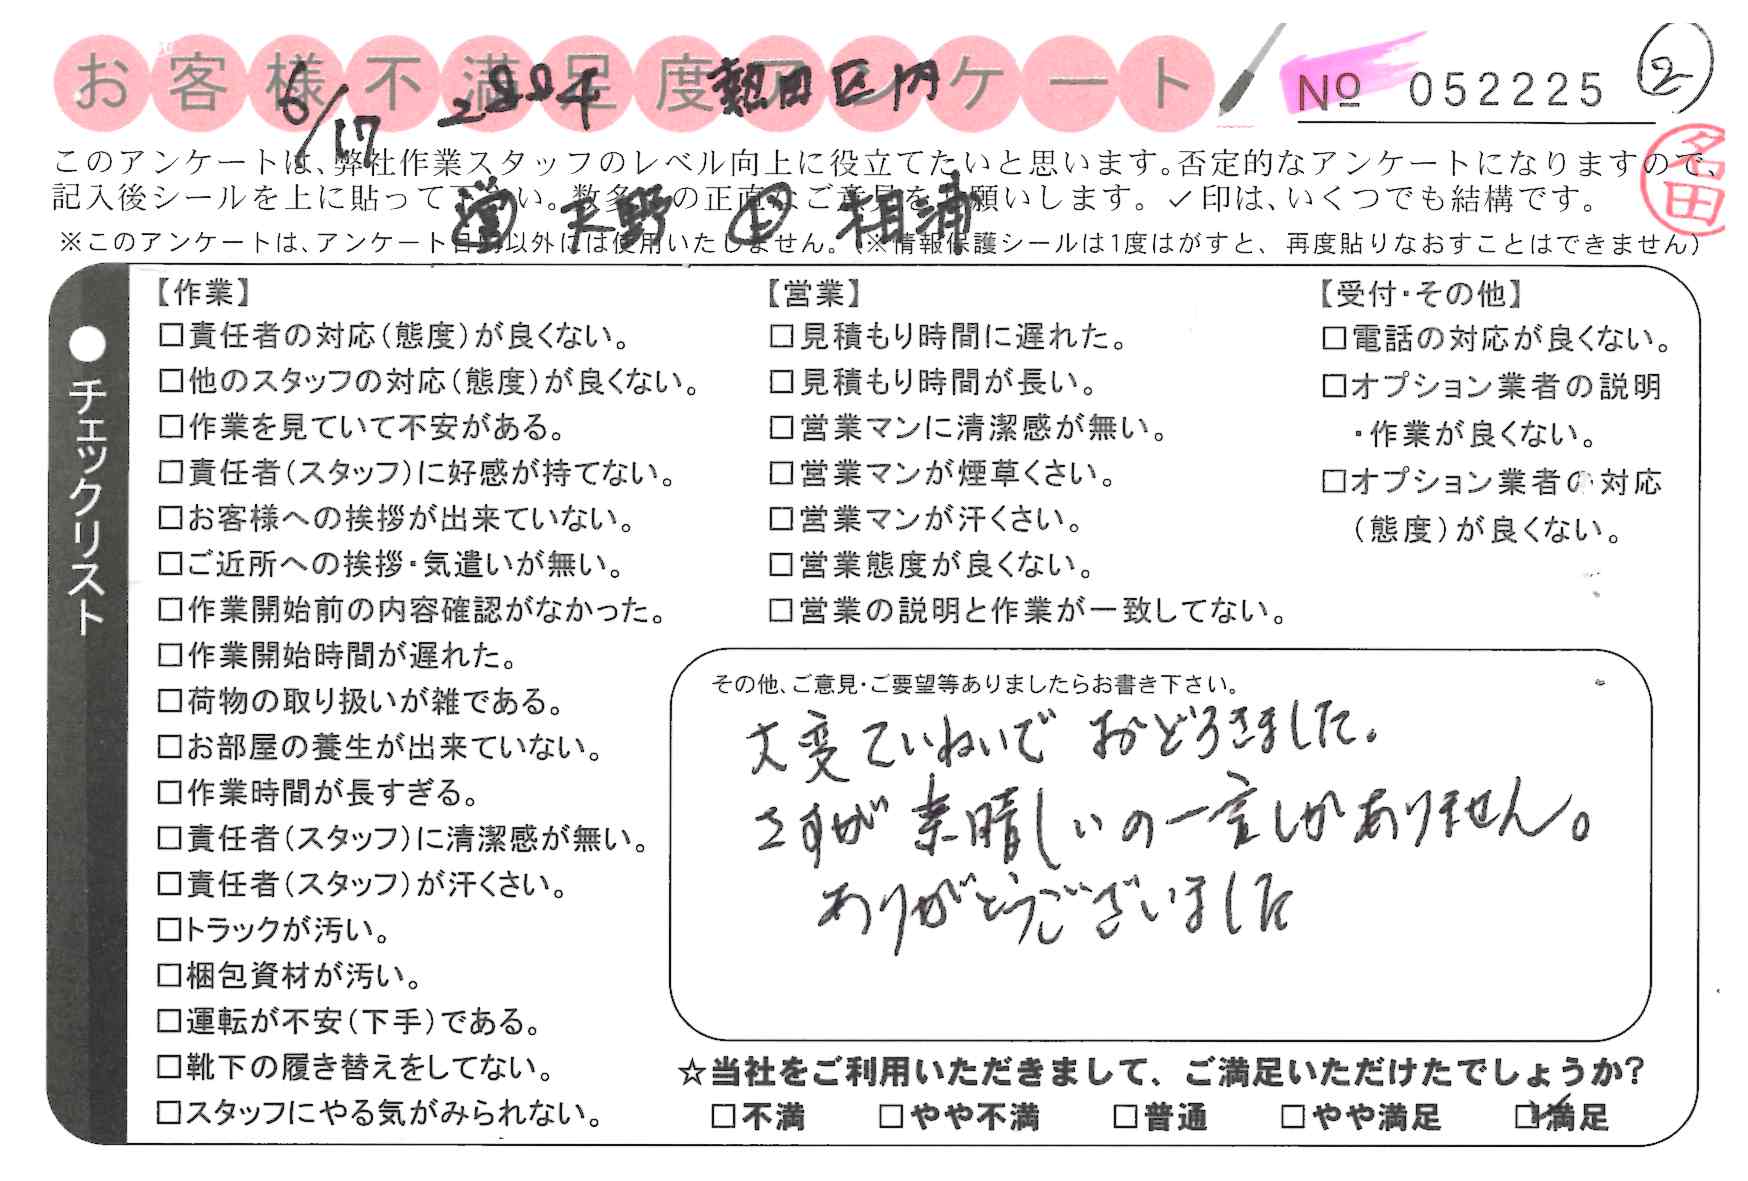 お客様不満足度アンケート
No 052225 ②
6/17 熱田区内
このアンケートは、弊社作業スタッフのレベル向上に役立てたいと思います。否定的なアンケートになりますので、
記入後シールを上に貼って下さい。数多くの正直なご意見をお願いします。✓印は、いくつでも結構です。
名田
営 天野 相浦
※このアンケートは、アンケート目的以外には使用いたしません。(※情報保護シールは1度はがすと、再度貼りなおすことはできません)
●チェックリスト
【作業】
□責任者の対応(態度)が良くない。
□他のスタッフの対応(態度)が良くない。
□作業を見ていて不安がある。
□責任者(スタッフ)に好感が持てない。
□お客様への挨拶が出来ていない。
□ご近所への挨拶・気遣いが無い。
□作業開始前の内容確認がなかった。
□作業開始時間が遅れた。
□荷物の取り扱いが雑である。
□お部屋の養生が出来ていない。
□作業時間が長すぎる。
□責任者(スタッフ)に清潔感が無い。
□責任者(スタッフ)が汗くさい。
□トラックが汚い。
□梱包資材が汚い。
□運転が不安(下手)である。
□靴下の履き替えをしてない。
□スタッフにやる気がみられない。
【営業】
□見積もり時間に遅れた。
□見積もり時間が長い。
□営業マンに清潔感が無い。
□営業マンが煙草くさい。
□営業マンが汗くさい。
□営業態度が良くない。
□営業の説明と作業が一致してない。
【受付・その他】
□電話の対応が良くない。
□オプション業者の説明
・作業が良くない。
□オプション業者の対応
(態度)が良くない。
その他、ご意見・ご要望等ありましたらお書き下さい。
大変ていねいで おどろきました。
さすが 素晴しいの一言しかありません。
ありがとうございました
☆当社をご利用いただきまして、ご満足いただけたでしょうか?
□不満 □やや不満 □普通 □やや満足 ☑満足